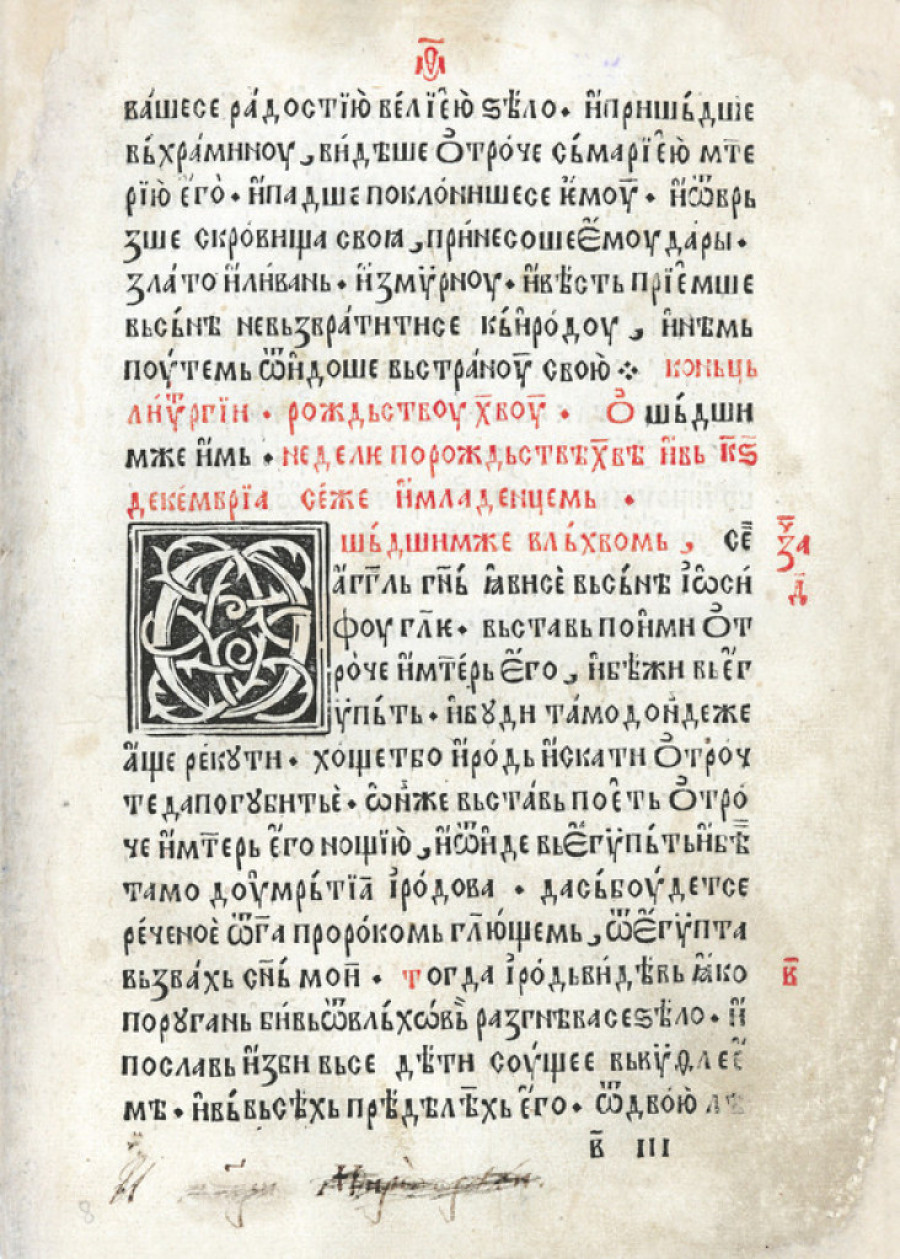 ва́шесе ра́достїю̀ ве́лїе́ю ѕѣ́ло · и҆пришь́дше
вь́хра́миноу , ви́дѣше Ѻ҆тро́че сь́марїе́ю мт҃е
рїю є҆го̀ · и҆падше покло́нишесе к̾ємоу · и҆ѿврь
зше скро́вища своꙗ , при́несоше Є҆моу да́ры ·
зла́то и҆ли́вань · и҆змѵ̈рноу · и҆вѣ́сть прїе́мше
вьсь́нѣ невьзвра́титисе кь и҆ро́доу , и҆нѣмь
поу́темь ѿи́доше вьстра́ноу свою̀ ⁘ коньць
лиѵ́ргїи · рождьствоу х҃воу · Ѻ҆шь́дши
мже и҆мь · неделꙗ порождьствѣ х҃вѣ и҆вь к҃ѕ
декемврїа се́же и҆младенцемь ·
шь́дшимже вльхвомь , се
а҆гг҃ль гн҃ь ꙗ҆висѐ вьсь́нѣ і҆ѡси
фоу гл҃ѥ · вьставь пои҆ми Ѻ҆т
ро́че и҆мт҃ерь Є҆го , и҆бѣ́жи вье҆г
ѵ̈пь́ть · и҆бꙋди та́мо до́ндеже
а҆ще ре́кꙋти · хо́щетбо и҆ро́дь и҆скати Ѻ҆тро́ч
те дапогꙋбитьѐ · ѡ҆нже вьста́вь пое́ть Ѻ҆тро́
че и҆мт҃ерь є҆го нощїю̀ , и҆ѿи́де вьЄ҆гѵ̈пьть и҆бѣ
тамо доу҆мрь́тїа і҆ро́дова · дасьбоу́детсе
ре́ченоѐ ѿг҃а проро́комь гл҃ю́щемь , ѿЄ҆гѵ̈пта
вьзва́хь сн҃ь мои҆ · тогда і҆ро́дь ви́дѣвь ꙗ҆ко
порꙋгань би́вь ѿвль́хѡвь разгнѣвасе ѕѣ́ло · и҆
пославь и҆зби вьсе дѣ́ти соу́щее вьвѵ̈ѳлее҆
мѣ · и҆вь́ вьсѣхь прѣ́дѣлѣхь є҆го · ѿдво́ю лѣ
в҃